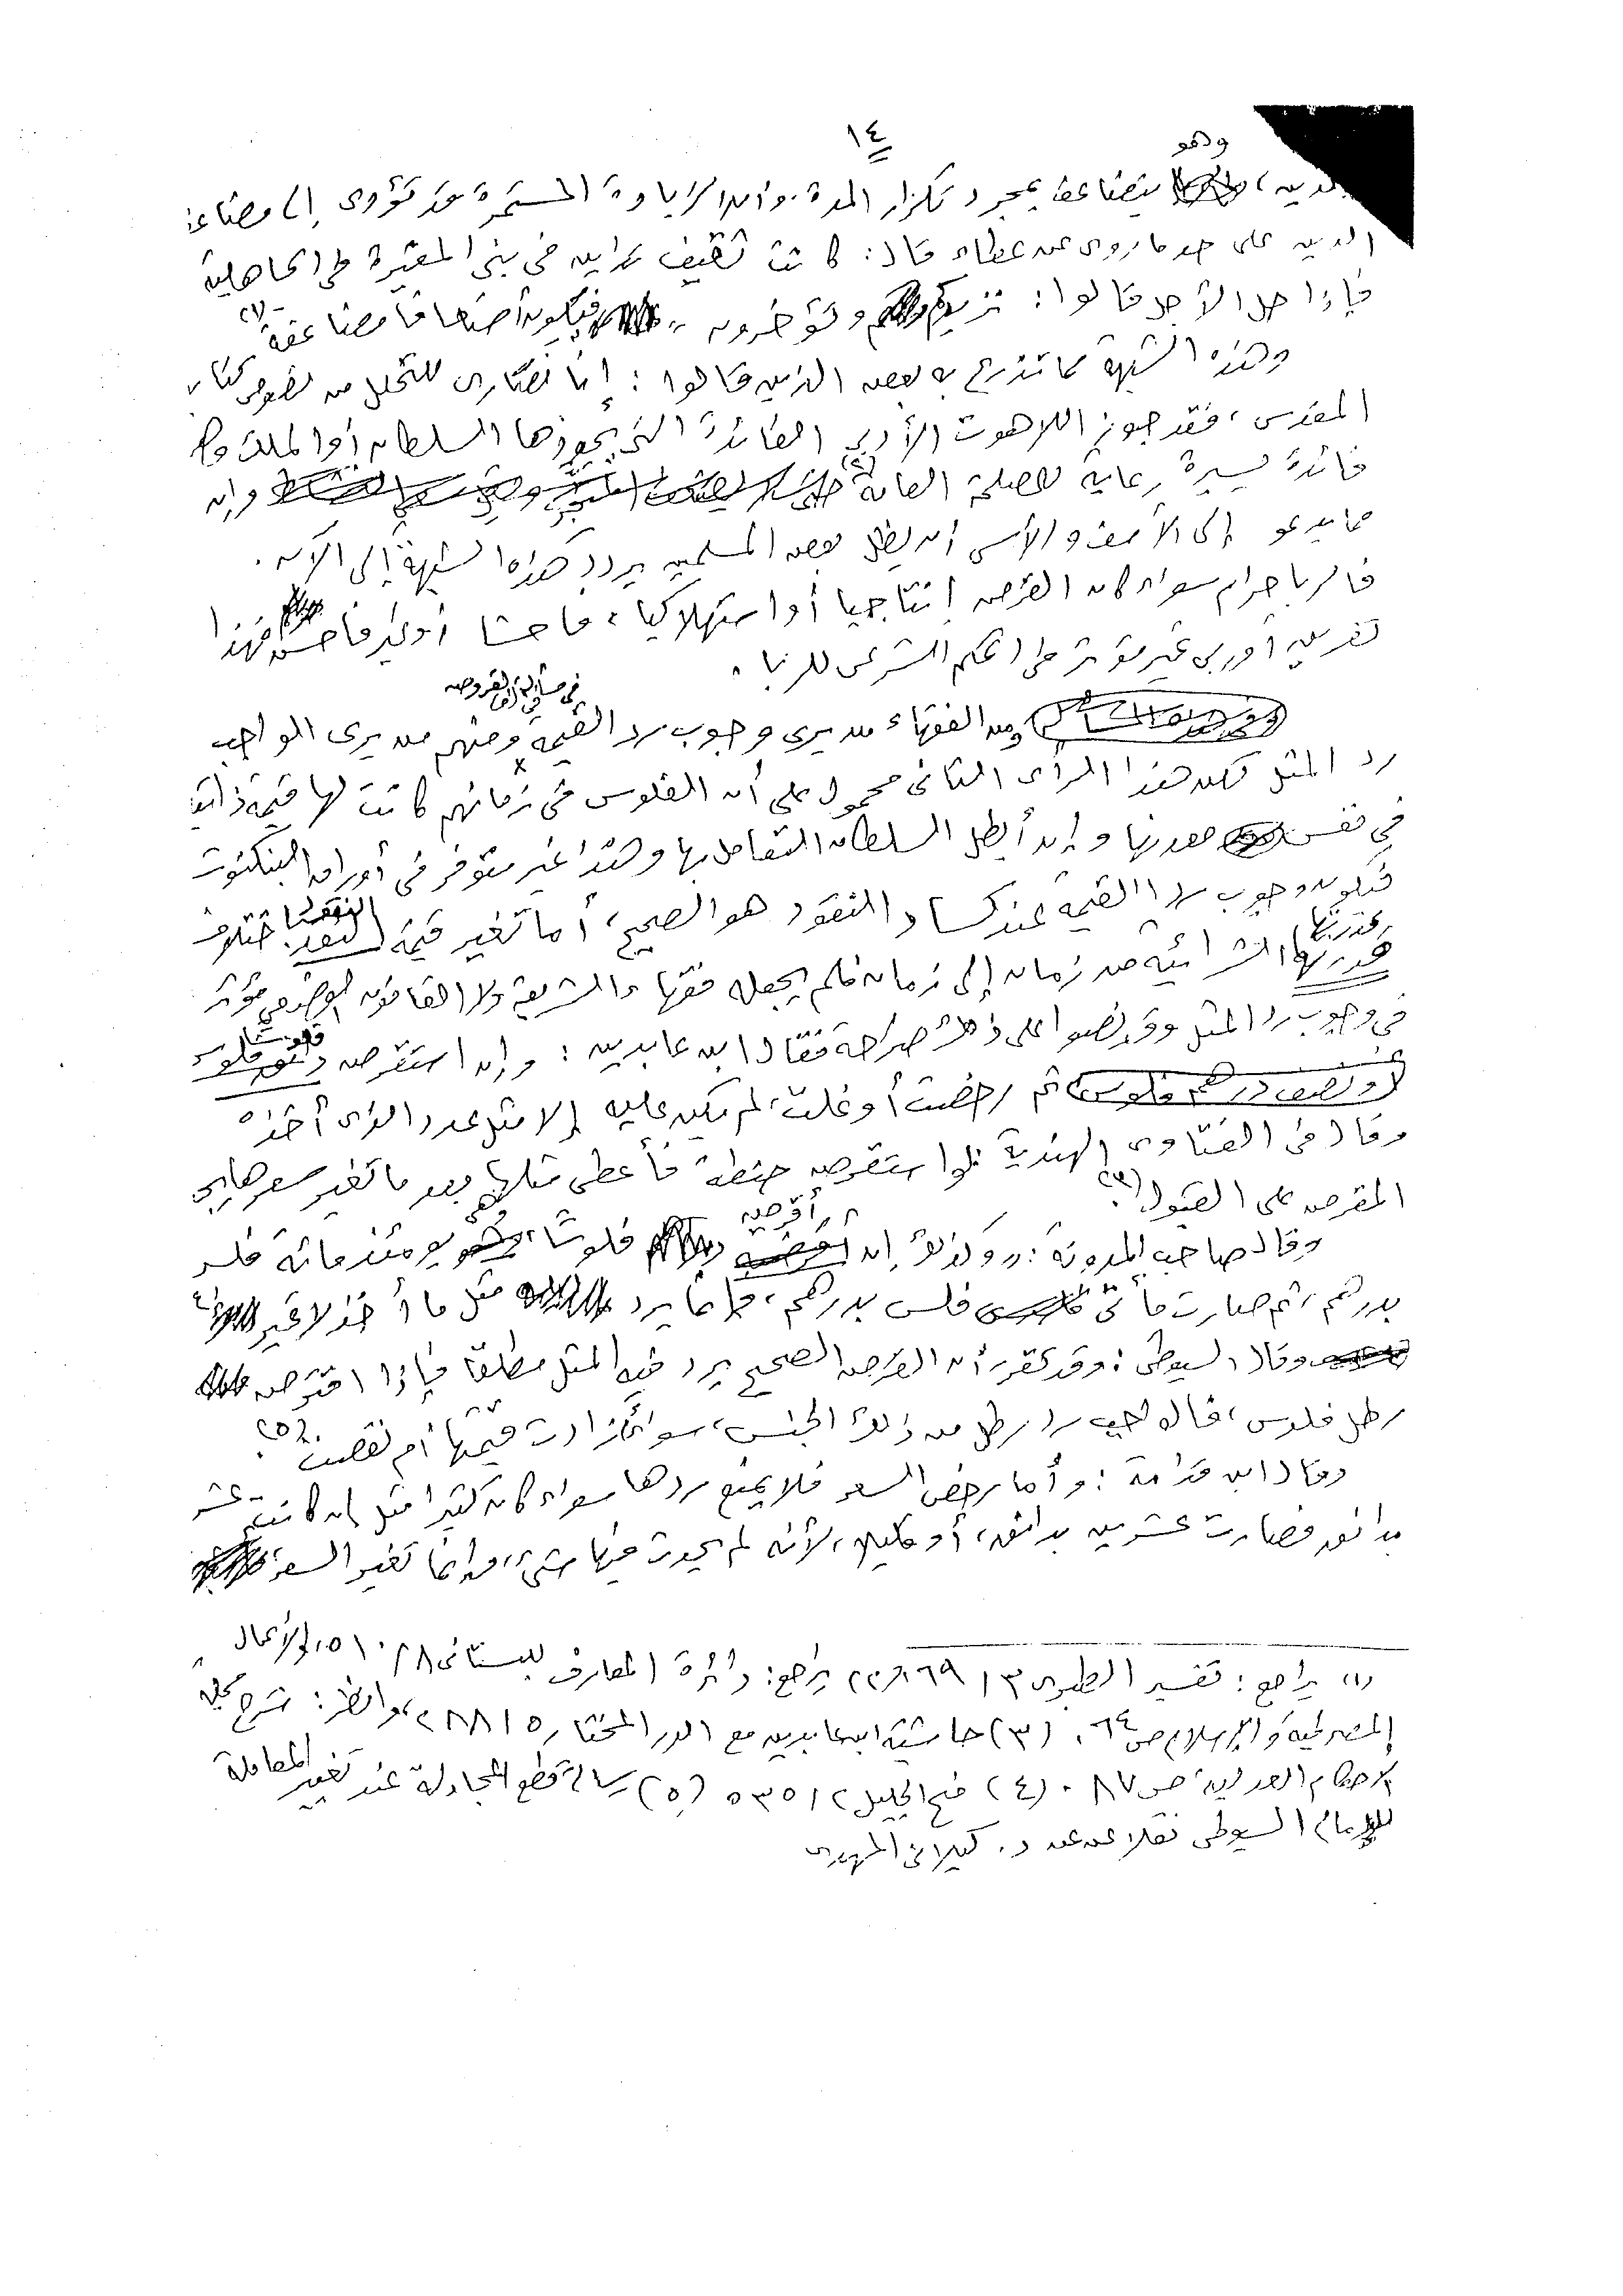 ١٤
الدين، وهو يتضاعف بمجرد تكرار المدة. وأن الزيادة المستمرة قد تؤدى إلى مضاعفة
الدين على حد ما روى عن عطاء قال: كانت ثقيف تداين فى بنى المغيرة فى الجاهلية
فإذا حل الأجل قالوا: نزيدكم وتؤخرون ،، فيكون أضعافا مضاعفة (١)
وهذه الشبهة مما تذرع به بعض الذين قالوا: إنا نصارى للتحلل من نصوص كتاب
المقدس، فقد جوز اللاهوت الأدبى الفائدة التى يجوزها السلطان أو الملك
فائدة يسيرة رعاية للمصلحة العامة (٢) وإن
مما يدعو إلى الأسف والأسى أن يظل بعض المسلمين يردد هذه الشبهة إلى الآن.
فالربا حرام سواء كان القرض إنتاجيا أو استهلاكيا، فاحشا أو غير فاحش فهذا
تفريق أوربى غير مؤثر فى الحكم الشرعى للربا.
ومن الفقهاء من يرى وجوب رد القيمة فى مسألة القروض ومنهم من يرى الواجب
رد المثل لكن هذا الرأى الثانى محمول على أن الفلوس فى زمانهم كانت لها قيمة ذاتية
فى نفس معدنها وإن أبطل السلطان التعامل بها وهذا غير متوفر فى أوراق البنكنوت
فيكون وجوب رد القيمة عند كساد النقود هو الصحيح، أما تغير قيمة النقد باختلاف
قدرتها الشرائية من زمان إلى زمان فلم يجعله فقهاء الشريعة ولا القانون الوضعى مؤثر
فى وجوب رد المثل وقد نصوا على ذلك صراحة فقال ابن عابدين: وإن استقرض دانق فلوس
أو نصف درهم فلوس، ثم رخصت أو غلت، لم يكن عليه إلا مثل عدد الذى أخذه
وقال فى الفتاوى الهندية لو استقرض حنطة فأعطى مثلها بعد ما تغير سعرها يجبر
المقرض على القبول (٣).
وقال صاحب المدونة: ,, وكذلك إن أقرضه فلوسًا، وهى يومئذ مائة فلس
بدرهم، ثم صارت مأتى فلس بدرهم، فإنما يرد مثل ما أخذ لا غير (٤)
وقال السيوطى: وقد تقرر أن القرض الصحيح يرد فيه المثل مطلقا فإذا اقترض
رطل فلوس، فالواجب رد رطل من ذلك الجنس، سواء زادت قيمتها أم نقصت (٥).
وقال ابن قدامة: وأما رخص السعر فلا يمنع ردها سواء كان كثيرا مثل إن كانت عشرة
بدانق فصارت عشرين بدانق، أو قليلا، لأنه لم يحدث فيها شىء، وإنما تغير السعر
(١) يراجع: تفسير الطبرى ٣/٦٩ (٢) يراجع: دائرة المعارف للبستانى ٨/٥١٠، والأعمال
المصرفية والإسلام ص ٦٤. (٣) حاشية ابن عابدين مع الدر المختار ٥/٢٨٨، وانظر: شرح مجلة
الأحكام العدلية ص ٨٧. (٤) منح الجليل ٢/٥٣٥ (٥) رسالة قطع المجادلة عند تغيير المعاملة
للإمام السيوطى نقلا عن د. كيلانى المهدى